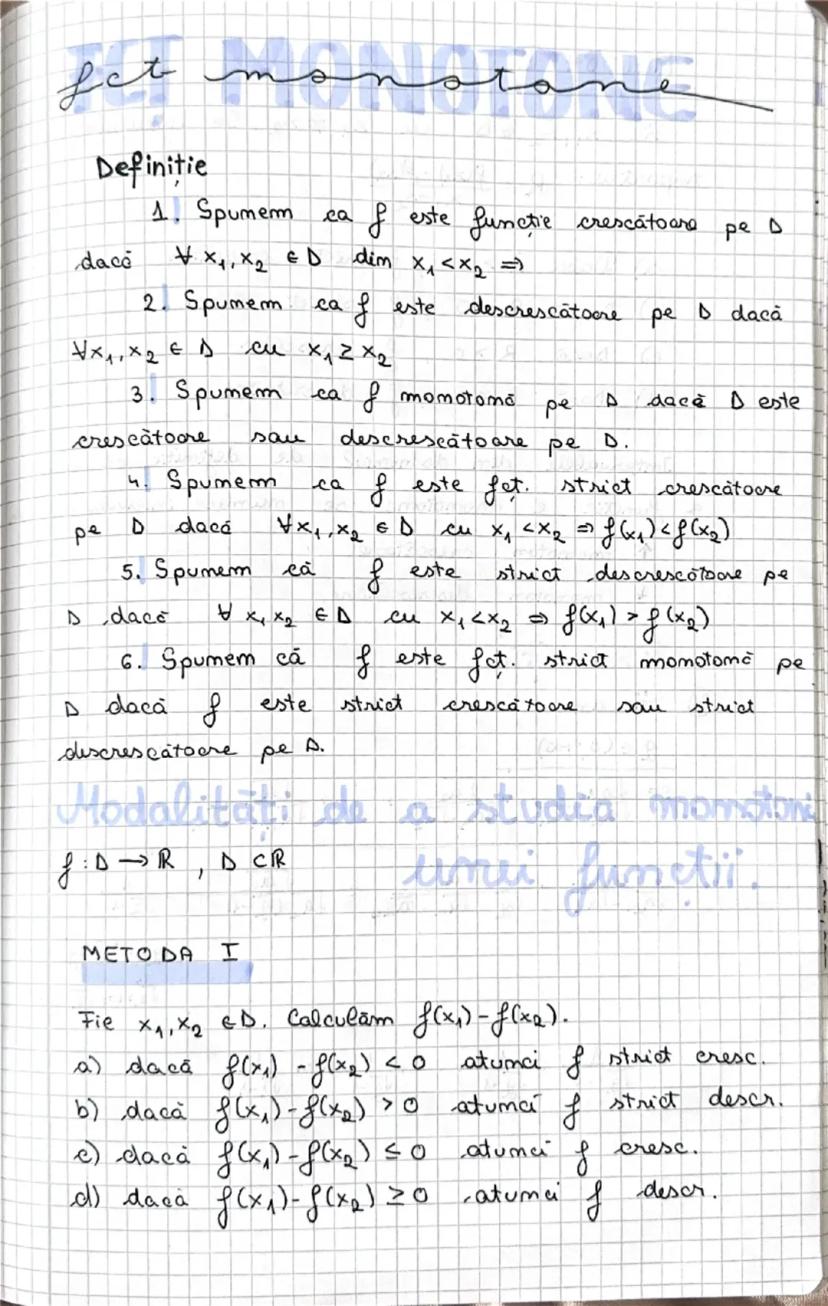 FCȚ MONOTONE
fct monotone
Definiție
1. Spunem ca f este funcție crescătoare pe D
dacă ∀ x₁, x₂ ∈ D din x₁ < x₂ ⇒
2. Spunem ca f este descrescătoare pe D dacă
∀x₁, x₂ ∈ D cu x₁ ≥ x₂
3. Spunem ca f monotonă pe D dacă D este
crescătoare sau descrescătoare pe D.
4. Spunem ca f este fcț. strict crescătoare
pe D dacă ∀x₁, x₂ ∈ D cu x₁ < x₂ ⇒ f(x₁) < f(x₂)
5. Spunem că f este strict descrescătoare pe
D dacă ∀ x₁ x₂ ∈ D cu x₁ < x₂ ⇒ f(x₁) > f(x₂)
6. Spunem că f este fcț. strict monotonă pe
D dacă f este strict crescătoare sau strict
discrescătoare pe D.
Modalități de a studia monotoni
unei funcții.
f : D → ℝ , D ⊂ ℝ
METODA I
Fie x₁, x₂ ∈ D. Calculăm f(x₁) - f(x₂).
a) dacă f(x₁) - f(x₂) < 0 atunci f strict cresc.
b) dacă f(x₁) - f(x₂) > 0 atunci f strict descr.
c) dacă f(x₁) - f(x₂) ≤ 0 atunci f cresc.
d) dacă f(x₁) - f(x₂) ≥ 0 atunci f descr.